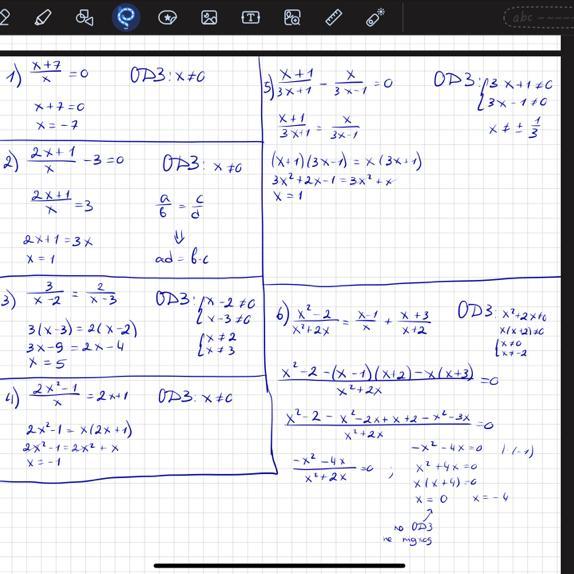 abc
1) (x+7)/x = 0    ОДЗ: x≠0
x+7=0
x=-7
2) (2x+1)/x - 3 = 0    ОДЗ: x≠0
(2x+1)/x = 3    a/b = c/d
⇓
2x+1=3x    ad = b·c
x=1
3) 3/(x-2) = 2/(x-3)    ОДЗ: { x-2≠0
x-3≠0
3(x-3)=2(x-2)    { x≠2
3x-9=2x-4    x≠3
x=5
4) (2x²-1)/x = 2x+1    ОДЗ: x≠0
2x²-1=x(2x+1)
2x²-1=2x²+x
x=-1
5) (x+1)/(3x+1) - x/(3x-1) = 0    ОДЗ: { 3x+1≠0
3x-1≠0
(x+1)/(3x+1) = x/(3x-1)    x≠±1/3
(x+1)(3x-1)=x(3x+1)
3x²+2x-1=3x²+x
x=1
6) (x²-2)/(x²+2x) = (x-1)/x + (x+3)/(x+2)    ОДЗ: x²+2x≠0
x(x+2)≠0
{ x≠0
x≠-2
(x²-2-(x-1)(x+2)-x(x+3))/(x²+2x) = 0
(x²-2-x²-2x+x+2-x²-3x)/(x²+2x) = 0
(-x²-4x)/(x²+2x) = 0 ;    -x²-4x=0    |·(-1)
x²+4x=0
x(x+4)=0
x=0    x=-4
по ОДЗ